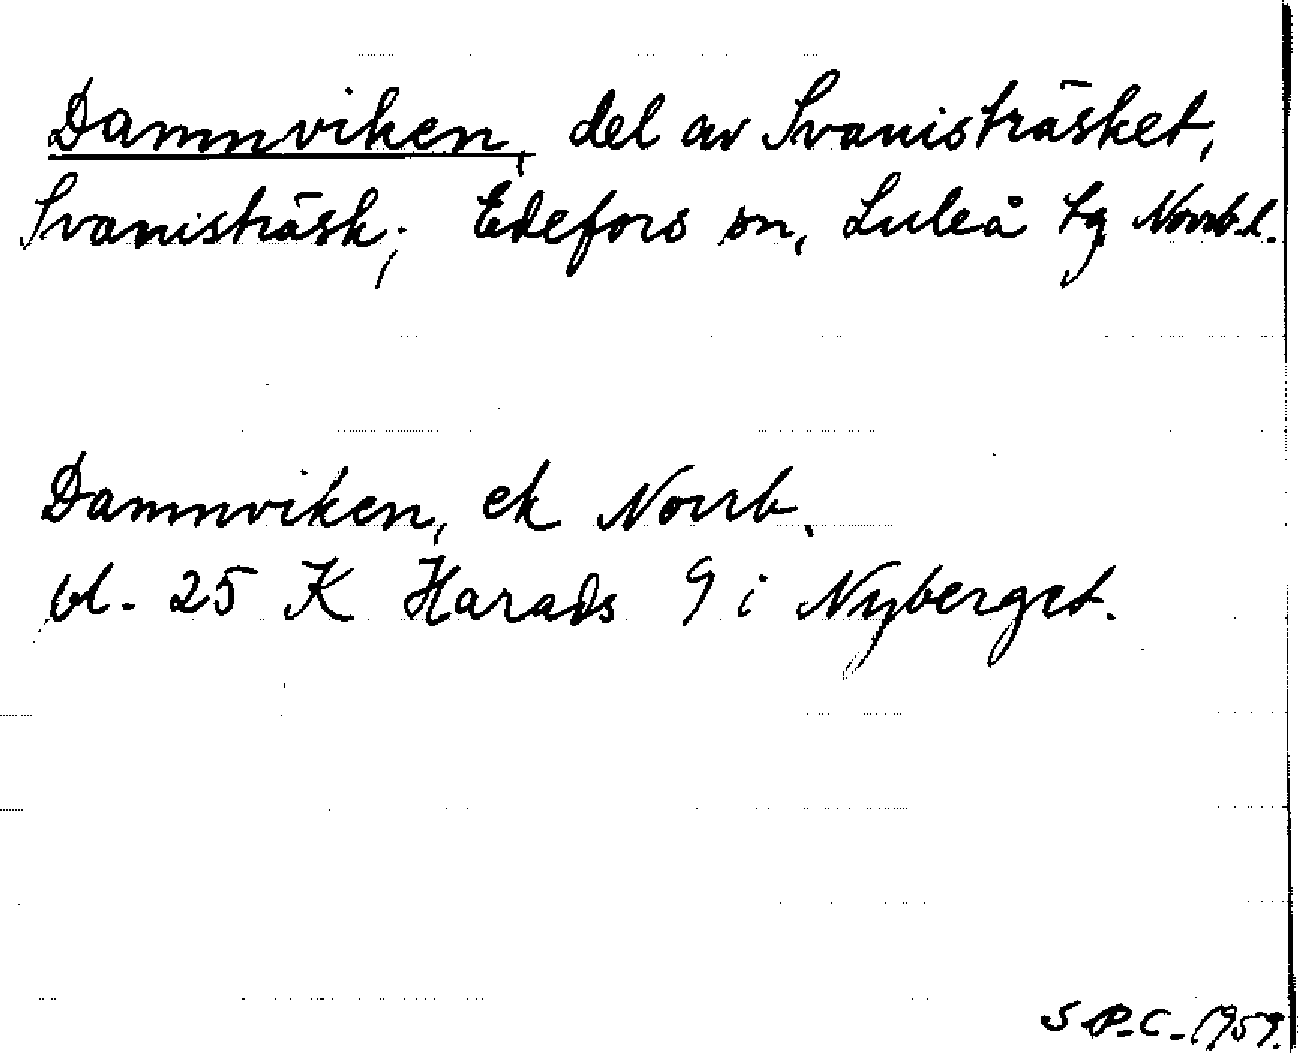 Damnviken, del av Svanisträsket,
Svanisträsk; Edefors sn, Luleå tg Norrb. l.
Damnviken, ek Norrb.
bl. 25 K Harads 9 i Nyberget.
S P.C. 1959.